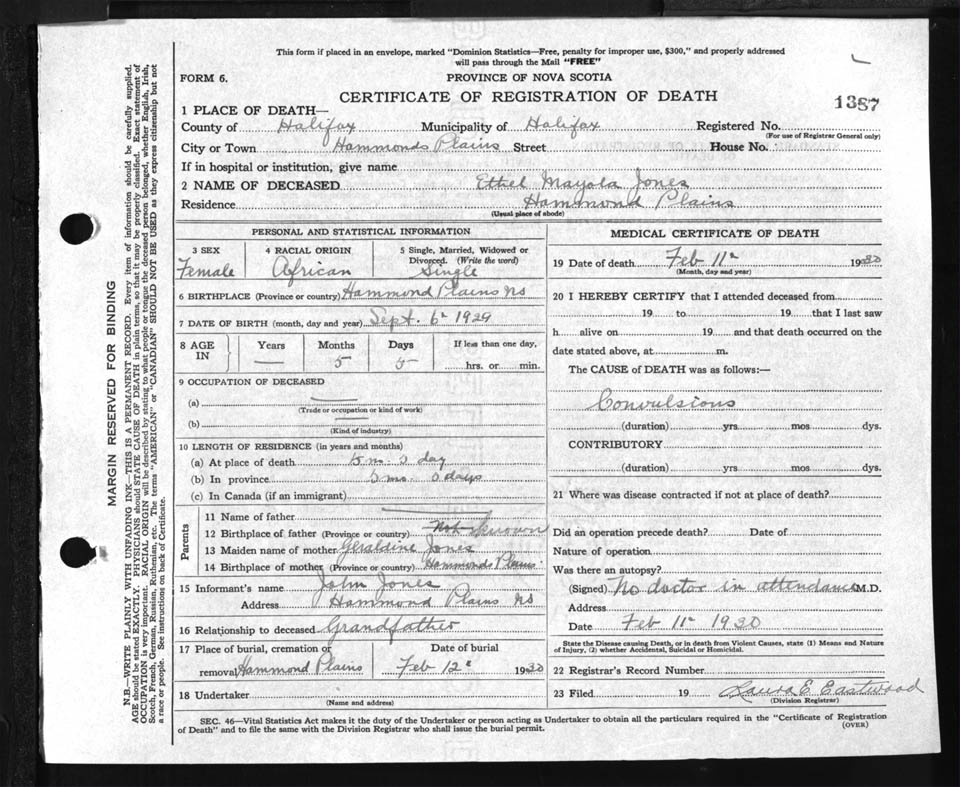 This form if placed in an envelope, marked "Dominion Statistics—Free, penalty for improper use, $300," and properly addressed
will pass through the Mail "FREE"
FORM 6.
PROVINCE OF NOVA SCOTIA
CERTIFICATE OF REGISTRATION OF DEATH
1387
1 PLACE OF DEATH—
County of Halifax Municipality of Halifax Registered No.
(For use of Registrar General only)
City or Town Hammonds Plains Street House No.
If in hospital or institution, give name
2 NAME OF DECEASED Ethel Mayola Jones
Residence Hammond Plains
(Usual place of abode)
PERSONAL AND STATISTICAL INFORMATION
3 SEX 4 RACIAL ORIGIN 5 Single, Married, Widowed or
Divorced. (Write the word)
Female African Single
6 BIRTHPLACE (Province or country) Hammond Plains NS
7 DATE OF BIRTH (month, day and year) Sept. 6" 1929
8 AGE IN Years Months Days If less than one day,
— 5 5 hrs. or min.
9 OCCUPATION OF DECEASED
(a)
(Trade or occupation or kind of work)
(b)
(Kind of industry)
10 LENGTH OF RESIDENCE (in years and months)
(a) At place of death 5 m. 5 day
(b) In province 5 mo. 5 days
(c) In Canada (if an immigrant)
Parents
11 Name of father
12 Birthplace of father (Province or country) Not Known
13 Maiden name of mother Geraldine Jones
14 Birthplace of mother (Province or country) Hammonds Plains
15 Informant's name John Jones
Address Hammond Plains NS
16 Relationship to deceased Grandfather
17 Place of burial, cremation or Date of burial
removal Hammond Plains Feb 12" 1930
18 Undertaker
(Name and address)
MEDICAL CERTIFICATE OF DEATH
19 Date of death Feb 11" 1930
(Month, day and year)
20 I HEREBY CERTIFY that I attended deceased from
19 to 19 that I last saw
h alive on 19 and that death occurred on the
date stated above, at m.
The CAUSE of DEATH was as follows:—
Convulsions
(duration) yrs. mos. dys.
CONTRIBUTORY
(duration) yrs. mos. dys.
21 Where was disease contracted if not at place of death?
Did an operation precede death? Date of
Nature of operation
Was there an autopsy?
(Signed) No doctor in attendance M.D.
Address
Date Feb 11" 1930
State the Disease causing Death, or in death from Violent Causes, state (1) Means and Nature
of Injury, (2) whether Accidental, Suicidal or Homicidal.
22 Registrar's Record Number
23 Filed 19 Laura E. Eastwood
(Division Registrar)
SEC. 46—Vital Statistics Act makes it the duty of the Undertaker or person acting as Undertaker to obtain all the particulars required in the "Certificate of Registration
of Death" and to file the same with the Division Registrar who shall issue the burial permit.
(OVER)
MARGIN RESERVED FOR BINDING
N.B.—WRITE PLAINLY WITH UNFADING INK—THIS IS A PERMANENT RECORD. Every item of information should be carefully supplied.
AGE should be stated EXACTLY. PHYSICIANS should STATE CAUSE OF DEATH in plain terms, so that it may be properly classified. Exact statement of
OCCUPATION is very important. RACIAL ORIGIN will be described by stating to what people or tongue the deceased person belonged, whether English, Irish,
Scotch, French, German, Russian, Ruthenian, etc. The terms "AMERICAN" or "CANADIAN" SHOULD NOT BE USED as they express citizenship but not
a race or people. See instructions on back of Certificate.